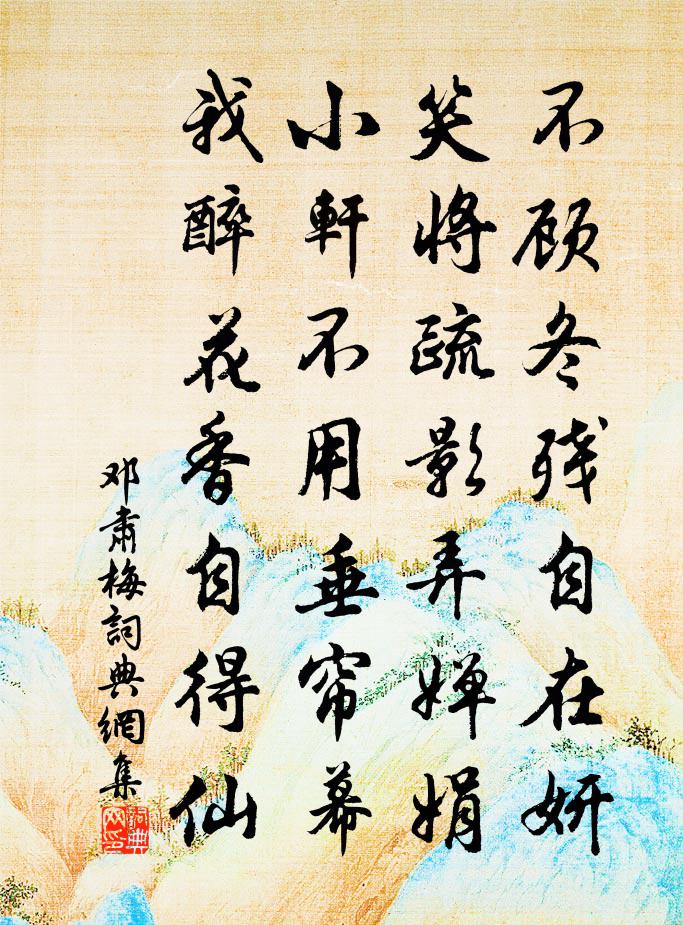 不顾冬残自在妍
笑将疏影弄婵娟
小軒不用垂帘幕
我醉花香自得仙
邓肃梅詞典網集
詞典网印